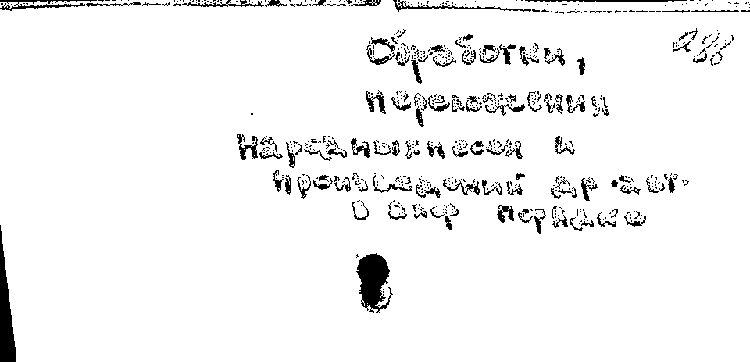 Обработки,
переложения
Народных песен и
произведений др. авт.
в алф порядке